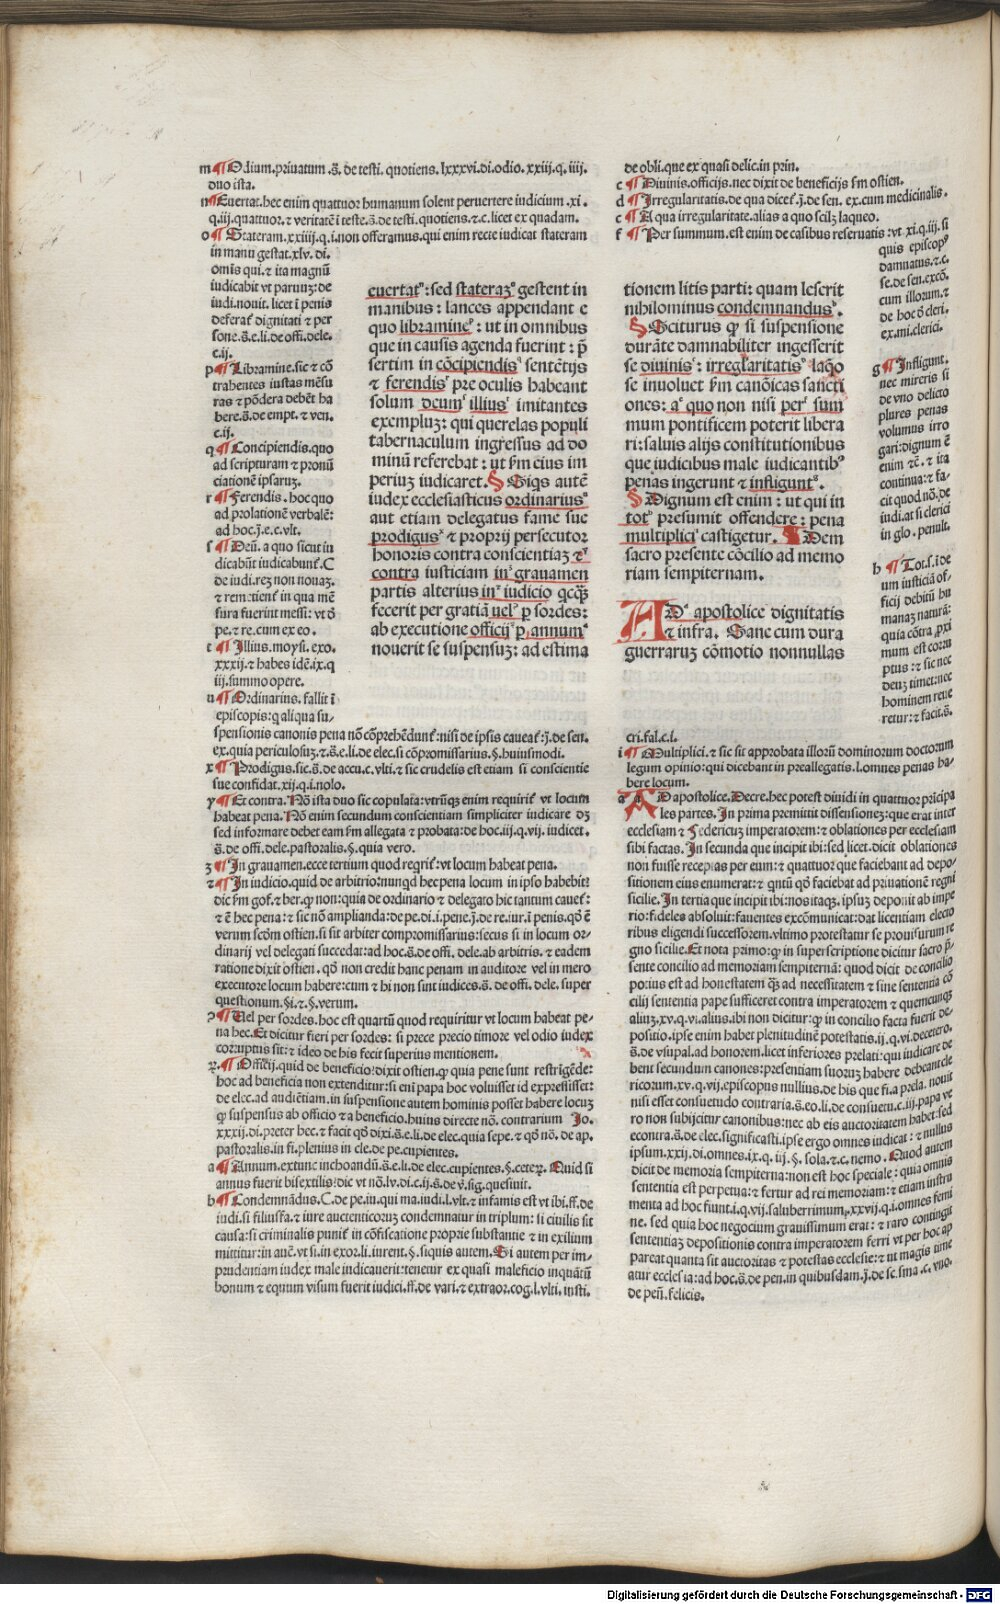 m ¶ Odium.priuatum .s̄. de testi. quotiens. lxxxvi.di.odio. xxiij.q. iiij.
duo ista.
n ¶ Euertat. hec enim quattuor humanum solent peruertere iudicium .xi.
q.iij.quattuor. ⁊ veritatē i teste.s̄.de testi.quotiens.⁊.c. licet ex quadam.
o ¶ Stateram.xxiiij.q.i.non offeramus.qui enim recte iudicat stateram
in manu gestat.xlv.di.
omīs qui.⁊ ita magnū
iudicabit vt paruuꝫ:de
iudi.nouit. licet ī penis
deferat᷑ dignitati ⁊ per
sone.s̄.e.li.de offi.dele.
c.ij.
p ¶ Libramine.sic ⁊ cō
trahentes iustas mēsu
ras ⁊ pōdera debēt ha
bere.s̄.de empt. ⁊ ven.
c.ij.
q ¶ Concipiendis.quo
ad scripturam ⁊ pronū
ciationē ipsaruꝫ.
r ¶ Ferendis. hoc quo
ad prolationē verbalē:
ad hoc.j̄.e.c.vlt.
s ¶ Deū. a quo sicut iu
dicabūt iudicabunt᷑.C
de iudi.reꝫ non nouaꝫ.
⁊ remetient᷑ in qua mē
sura fuerint messi: vt đ
pe.⁊ re.cum ex eo.
t ¶ Illius.moysi. exo.
xxxij.⁊ habes idē.ix.q
iij.summo opere.
u ¶ Ordinarius. fallit ī
episcopis:q aliqua su-
spensionis canonis pena nō cōprehēdunt᷑:nisi de ipsis caueat᷑:j̄.de sen.
ex.quia periculosuꝫ.⁊.s̄.e.li.de elec.si cōpromissarius.§.huiusmodi.
x ¶ Prodigus.sic.s̄.de accu.c.vlti.⁊ sic crudelis est etiam si conscientie
sue confidat.xij.q.i.nolo.
y ¶ Et contra. Nō ista duo sic copulata:vtrūqꝫ enim requirit᷑ vt locum
habeat pena. Nō enim secundum conscientiam simpliciter iudicare dꝫ
sed informare debet eam ẜm allegata ⁊ probata:de hoc.iij.q.vij. iudicet.
s̄. de offi. dele.pastoralis.§.quia vero.
ꝫ ¶ In grauamen.ecce tertium quod reqrit᷑:vt locum habeat pena.
⁊ ¶ In iudicio.quid de arbitrio:nunqd hec pena locum in ipso habebit?
dic ẜm gof.⁊ ber.ꝙ non:quia de ordinario ⁊ delegato hic tantum cauet᷑:
⁊ ē hec pena:⁊ sic nō amplianda:de pe.di.i.pene.j̄.de re.iur.ī penis.qđ ē
verum scđm ostien.si sit arbiter compromissarius:secus si in locum or-
dinarij vel delegati succedat:ad hoc.s̄.de offi. dele.ab arbitris. ⁊ eadem
ratione dixit ostien. qđ non credit hanc penam in auditore vel in mero
executore locum habere:cum ⁊ hi non sint iudices.s̄. de offi. dele. super
questionum.§i.⁊.§.verum.
ꝯ ¶ Uel per sordes.hoc est quartū quod requiritur vt locum habeat pe-
na hec.Et dicitur fieri per sordes: si prece precio timore vel odio iudex
corruptus sit:⁊ ideo de his fecit superius mentionem.
ꝝ ¶ Officij.quid de beneficio:dixit ostien.ꝙ quia pene sunt restrīgēde:
hoc ad beneficia non extenditur:si eni papa hoc voluisset id expressisset:
de elec.ad audiētiam.in suspensione autem hominis posset habere locuꝫ
ꝙ suspensus ab officio ⁊ a beneficio.huius directe nō. contrarium Jo.
xxxij.di.preter hec.⁊ facit qđ dixi.s̄.e.li.de elec.quia sepe.⁊ qđ nō. de ap.
pastoralis.in fi.plenius in cle.de pe.cupientes.
a ¶ Annum.extunc inchoandū.s̄.e.li.de elec.cupientes.§.ceteꝝ. Quid si
annus fuerit bisextilis:dic vt nō.lv.di.c.ij.s̄.de v̄.sig.quesiuit.
b ¶ Condemnādus.C.de pe.iu.qui ma.iudi.l.vlt.⁊ infamis est vt ibi.ff.de
iudi.si filiusfa.⁊ iure auctenticoruꝫ condemnatur in triplum: si ciuilis sit
causa:si criminalis punit᷑ in cōfiscatione proprie substantie ⁊ in exilium
mittitur:in autē.vt si.in exor.li.iurent.§.siquis autem.Si autem per im-
prudentiam iudex male indicauerit:tenetur ex quasi maleficio inquātū
bonum ⁊ equum visum fuerit iudici.ff.de vari.⁊ extraor.cog.l.vlti. insti.
euertat᷑: sed stateraꝫ gestent in
manibus: lances appendant e
quo libramine: ut in omnibus
que in causis agenda fuerint: p̄
sertim in cōcipiendis sentētijs
⁊ ferendis pre oculis habeant
solum deum illius imitantes
exempluꝫ: qui querelas populi
tabernaculum ingressus ad do
minū referebat: ut ẜm eius im
periuꝫ iudicaret. § Siqs autē
iudex ecclesiasticus ordinarius
aut etiam delegatus fame sue
prodigus ⁊ proprij persecutor
honoris contra conscientiaꝫ ⁊
contra iusticiam in grauamen
partis alterius in iudicio qcqꝫ
fecerit per gratiā uel p sordes:
ab executione officij p annum
nouerit se suspensuꝫ: ad estima
de obli.que ex quasi delic.in prin.
c ¶ Diuinis.officijs.nec dixit de beneficijs ẜm ostien.
d ¶ Irregularitatis.de qua dicet᷑.j̄.de sen. ex.cum medicinalis.
e ¶ A qua irregularitate.alias a quo scilꝫ laqueo.
f ¶ Per summum.est enim de casibus reseruatis:vt xi.q.iij.si
quis episcopꝰ
damnatus.⁊.c.
se.de sen.excō.
cum illorum.⁊
de hoc đ cleri.
ex.mi.clerici.
g ¶ Infligunt.
nec mireris si
de vno delicto
plures penas
volumus irro
gari:dignum ē
enim ⁊c̄. ⁊ ita
continua:⁊ fa-
cit quod nō.de
iudi.at si clerici
in glo. penult.
h ¶ Tot.s.i de-
um iusticiā of-
ficij debitū hu
manaꝫ naturā:
quia cōtra ꝓxi
mum est corru
ptus :⁊ sic nec
deuꝫ timet:nec
hominem reue
retur:⁊ facit.s̄.
cri.fal.c.i.
tionem litis parti: quam leserit
nihilominus condemnandus.
§ Sciturus ꝙ si suspensione
durāte damnabiliter ingesserit
se diuinis: irregl̄aritatis laqo
se inuoluet ẜm canōicas sancti
ones: a quo non nisi per sum
mum pontificem poterit libera
ri:saluis alijs constitutionibus
que iudicibus male iudicantibꝰ
penas ingerunt ⁊ infligunt.
§ Dignum est enim: ut qui in
tot presumit offendere: pena
multiplici castigetur. § Idem
sacro presente cōcilio ad memo
riam sempiternam.
AD apostolice dignitatis
⁊ infra. Sane cum dura
guerraruꝫ cōmotio nonnullas
i ¶ Multiplici.⁊ sic sit approbata illorū dominorum doctorum
legum opinio:qui dicebant in preallegatis.l.omnes penas ha-
bere locum.
a AD apostolice.Decre.hec potest diuidi in quattuor pricipa
les partes. In prima premittit dissensioneꝫ:que erat inter
ecclesiam ⁊ Federicuꝫ imperatorem:⁊ oblationes per ecclesiam
sibi factas. In secunda que incipit ibi:sed.licet.dicit oblationes
non fuisse receptas per eum:⁊ quattuor que faciebant ad depo-
sitionem eius enumerat:⁊ qntū qđ faciebat ad priuationē regni
sicilie. In tertia que incipit ibi:nos itaqꝫ. ipsuꝫ deponit ab impe
rio:fideles absoluit:fauentes excōmunicat:dat licentiam electo
ribus eligendi successorem.vltimo protestatur se prouisurum re
gno sicilie.Et nota primo:ꝙ in superscriptione dicitur sacro p̄-
sente concilio ad memoriam sempiternā: quod dicit de concilio
potius est ad honestatem q̄ꝫ ad necessitatem ⁊ sine sententia cō
cilij sententia pape sufficeret contra imperatorem ⁊ quemcunqꝫ
aliuꝫ.xv.q.vi.alius.ibi non dicitur:ꝙ in concilio facta fuerit de-
positio.ipse enim habet plenitudinē potestatis.ij.q.vi.decreto.
s̄.de vsu pal.ad honorem.licet inferiores prelati:qui iudicare de
bent secundum canones:presentiam suoruꝫ habere debeant cle
ricorum.xv.q.vij.episcopus nullius.de his que fi.a prela. nouit
nisi esset consuetudo contraria.s̄.eo.li.de consuetu.c.iij.papa ve
ro non subijcitur canonibus:nec ab eis auctoritatem habet:sed
econtra.s̄.de elec.significasti.ipse ergo omnes iudicat:⁊ nullus
ipsum.xxij.di.omnes.ix.q.iij.§.sola.⁊.c.nemo. Quod autem
dicit de memoria sempiterna:non est hoc speciale: quia omnis
sententia est perpetua:⁊ fertur ad rei memoriam:⁊ etiam instru
menta ad hoc fiunt.i.q.vij.saluberrimum.xxvij.q.i.omnes femi
ne. sed quia hoc negocium grauissimum erat: ⁊ raro contingit
sententiaꝫ depositionis contra imperatorem ferri vt per hoc ap
pareat quanta sit auctoritas ⁊ potestas ecclesie:⁊ ut magis time
atur ecclesia:ad hoc.s̄.de pen.in quibusdam.j̄.de sc.sma.c.vno.
de pen̄.felicis.
Digitalisierung gefördert durch die Deutsche Forschungsgemeinschaft - DFG